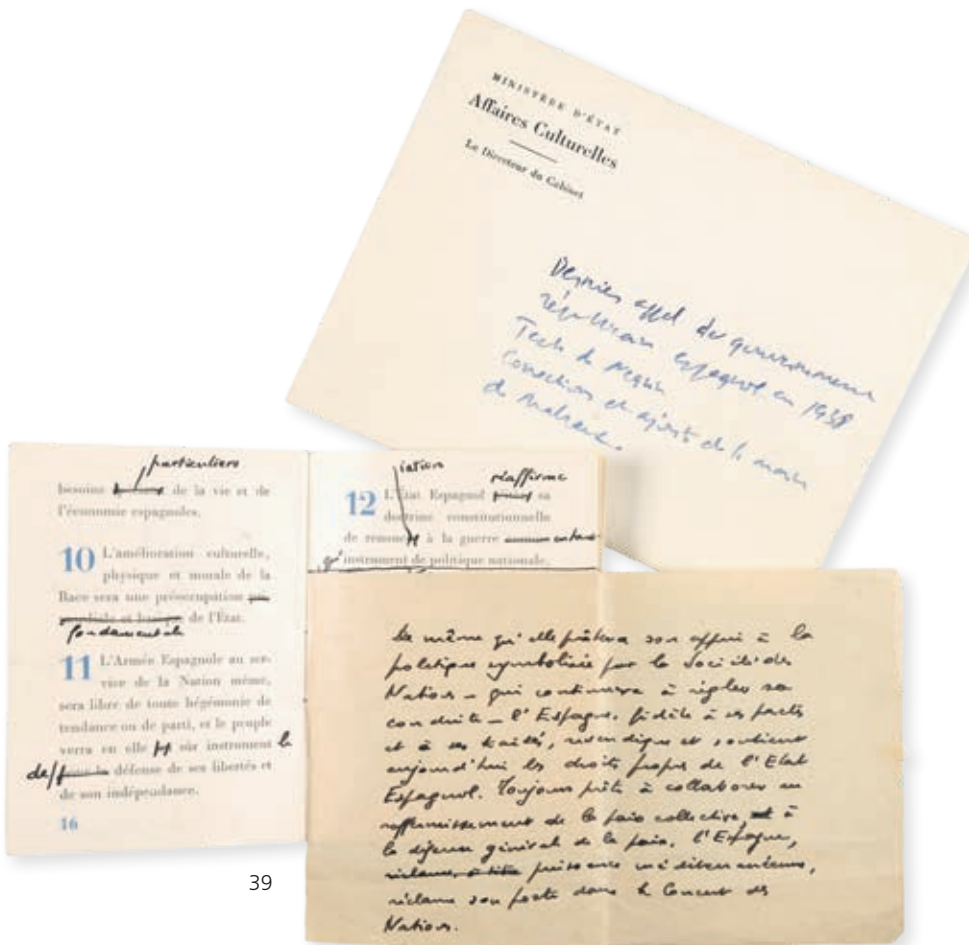 MINISTÈRE D'ÉTAT
Affaires Culturelles
Le Directeur du Cabinet
Dernier appel du gouvernement
républicain espagnol en 1938
Texte de Negrin
Correction et ajouts de la main
de Malraux
particuliers
besoins de la vie et de
l'économie espagnoles.
10 L'amélioration culturelle,
physique et morale de la
Race sera une préoccupation
primordiale et basique de l'État.
fondamentale
11 L'Armée Espagnole au ser-
vice de la Nation même,
sera libre de toute hégémonie de
tendance ou de parti, et le peuple
verra en elle sûr instrument le
de pour la défense de ses libertés et
de son indépendance.
16
iation
réaffirme
12 L'État Espagnol sa
doctrine constitutionnelle
de renon à la guerre en tant
qu' instrument de politique nationale.
De même qu'elle prêtera son appui à la
politique symbolisée par la Société des
Nations – qui continuera à régler sa
conduite – l'Espagne, fidèle à ses pactes
et à ses traités, revendique et soutient
aujourd'hui les droits propres de l'Etat
Espagnol. Toujours prête à collaborer au
raffermissement de la paix collective, et à
la défense générale de la paix, l'Espagne,
réclame, à titre puissance méditerranéenne,
réclame son poste dans le Concert des
Nations.
39